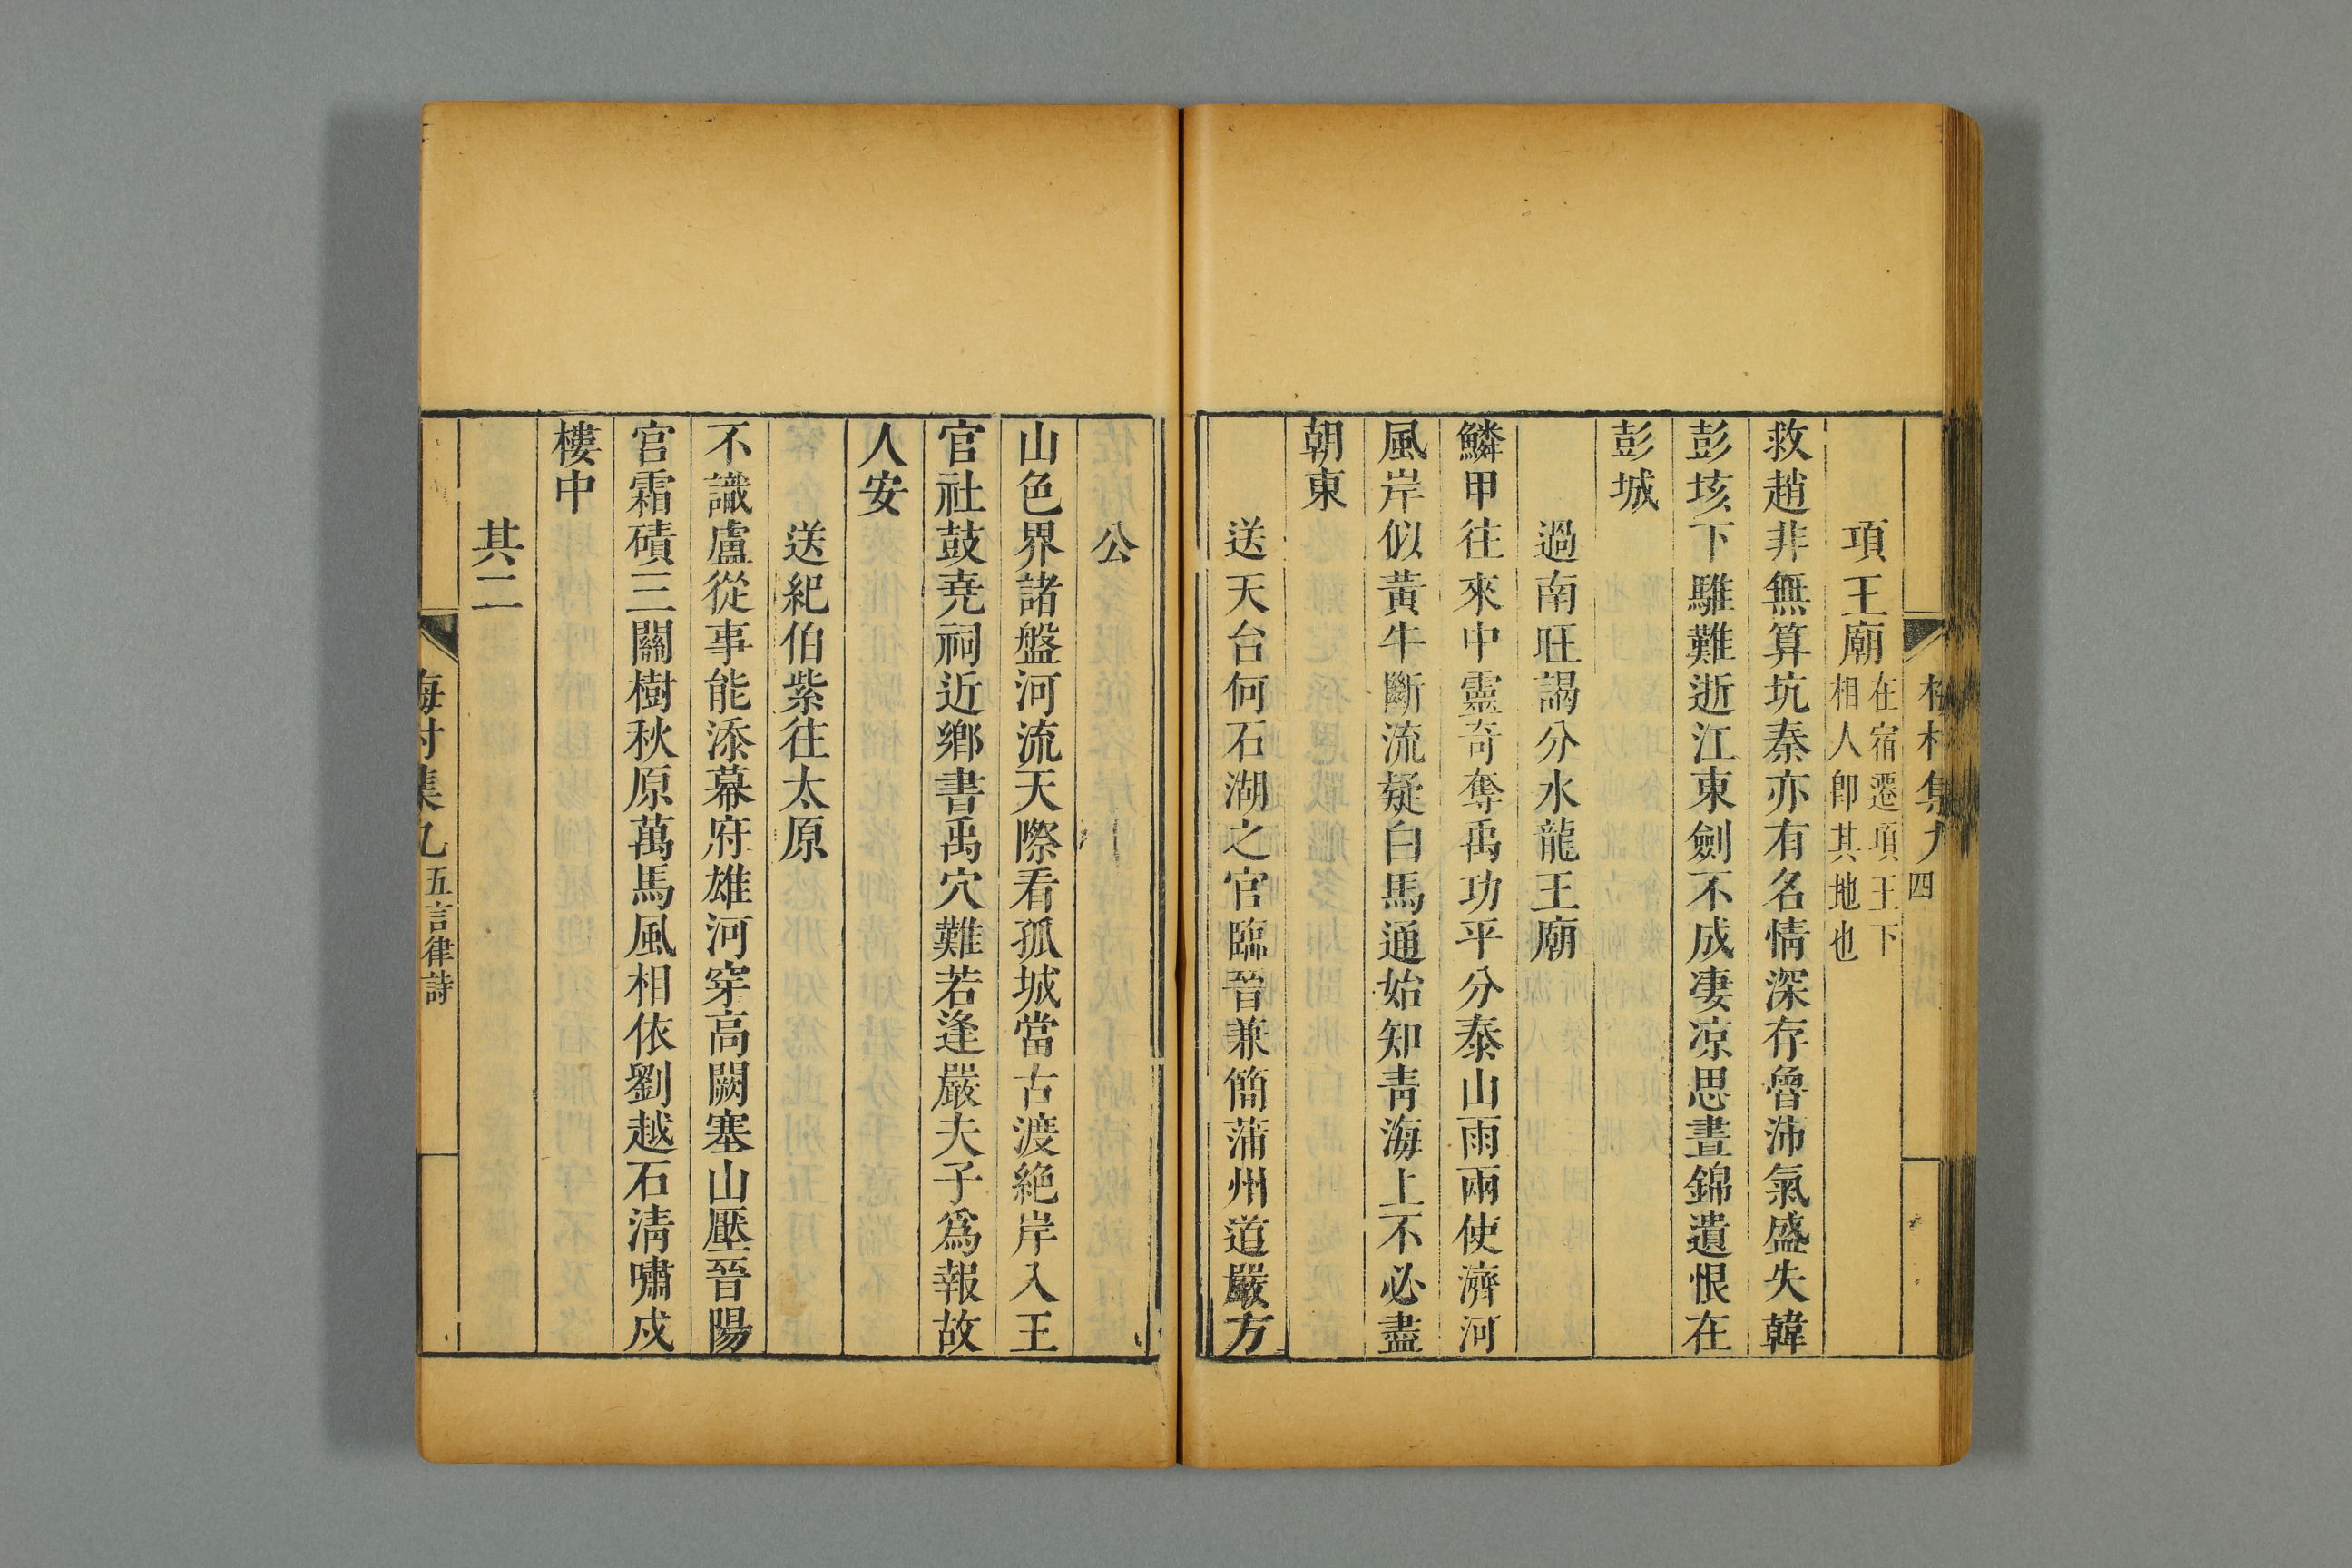 項王廟在宿遷項王下
相人卽其地也
救趙非無算坑秦亦有名情深存魯沛氣盛失韓
彭垓下騅難逝江東劍不成凄凉思晝錦遺恨在
彭城
過南旺謁分水龍王廟
鱗甲往來中靈奇奪禹功平分泰山雨兩使濟河
風岸似黃牛斷流疑白馬通始知靑海上不必盡
朝東
送天台何石湖之官臨晉兼簡蒲州道嚴方
公
山色界諸盤河流天際看孤城當古渡絶岸入王
官社鼓堯祠近鄉書禹穴難若逢嚴夫子爲報故
人安
送紀伯紫往太原
不識盧從事能添幕府雄河穿高闕塞山壓晉陽
宮霜磧三關樹秋原萬馬風相依劉越石淸嘯戍
樓中
其二
梅村集九 四
梅村集九 五言律詩